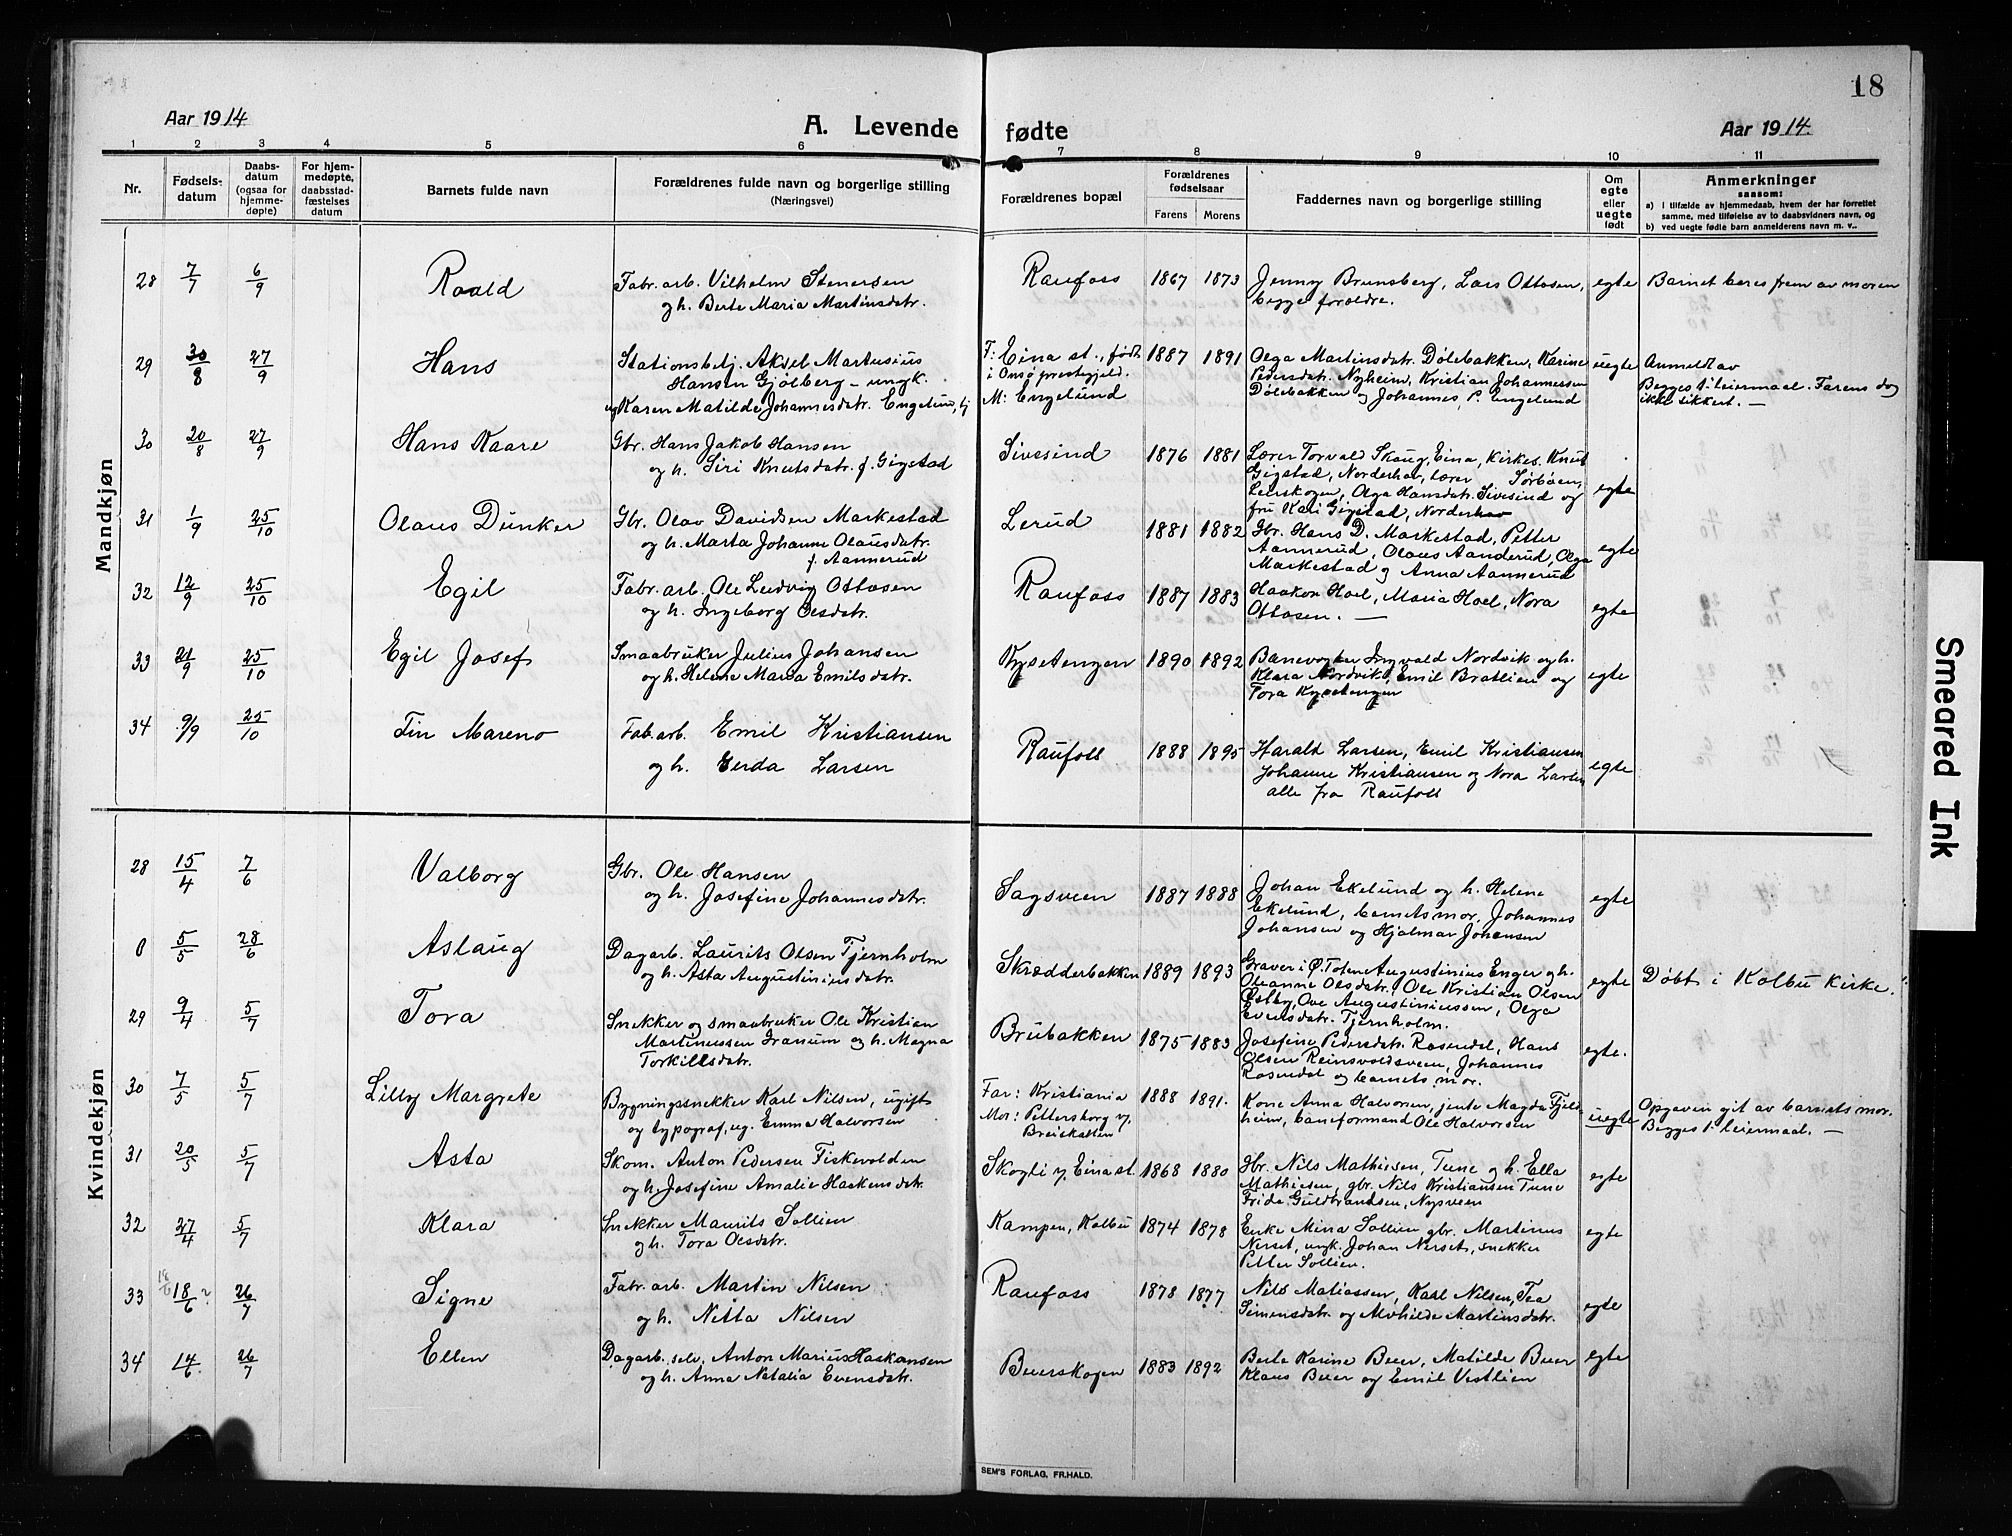 18
Aar 1914
A. Levende fødte
Aar 1914.
1 2 3 4 5 6 7 8 9 10 11
Nr.
Fødsels-
datum
Daabs-
datum
(ogsaa for
hjemme-
døpte)
For hjem-
medøpte,
daabsstad-
fæstelses
datum
Barnets fulde navn
Forældrenes fulde navn og borgerlige stilling
(Næringsvei)
Forældrenes bopæl
Forældrenes
fødselsaar
Farens Morens
Faddernes navn og borgerlige stilling
Om
egte
eller
uegte
født
Anmerkninger
saasom:
a) i tilfælde av hjemmedaab, hvem der har forrettet
samme, med tilføielse av to daabsvidners navn, og
b) ved uegte fødte barn anmelderens navn m. v..
Mandkjøn
28 7/7 6/9 Roald Fabr. arb. Vilhelm Stenersen
og h. Berte Maria Martinsdatr.
Raufoss 1867 1873 Jenny Brunsberg, Lars Ottosen,
begge forældre.
egte Barnet bæres frem av moren
29 30/8 27/9 Hans Stationsbetj. Aksel Martinius
Hansen Gjølberg - ungk.
og Karen Matilde Johannesdatr. Engelund, tj
F: Eina st., født
i Onsø prestegjeld.
M: Engelund
1887 1891 Olga Martinsdatr. Dølebakken, Karine
Pedersdatr. Nyheim, Kristian Johannessen
Dølebakken og Johannes P. Engelund
uegte Anmeldt av
Begges 1. leiermaal. Farens dog
ikke sikkert. —
30 20/8 27/9 Hans Kaare Gbr. Hans Jakob Hansen
og h. Siri Knutsdatr. f. Gigstad
Sivesind 1876 1881 Lærer Torvald Skaug, Eina, Kirkes. Knut
Gigstad, Norderhov, lærer Sørbøen,
Leirskogen, Olga Hansdatr. Sivesind og
fru Kari Gigstad, Norderhov
egte
31 1/9 25/10 Olaus Dunker Gbr. Olav Davidsen Markestad
og h. Marta Johanne Olausdatr.
f. Aannerud
Lerud 1881 1882 Gbr. Hans D. Markestad, Petter
Aannerud, Olaus Aanderud, Olga
Markestad og Anna Aannerud
egte
32 12/9 25/10 Egil Fabr. arb. Ole Ludvig Ottosen
og h. Ingeborg Olsdatr.
Raufoss 1887 1883 Haakon Hoel, Maria Hoel, Nora
Ottosen. —
egte
33 21/9 25/10 Egil Josef Smaabruker Julius Johansen
og h. Helene Maria Emilsdatr.
Kysetengen 1890 1892 Banevogter Ingvald Nordvik og h.
Klara Nordvik, Emil Bratlien og
Tora Kysetengen
egte
34 9/9 25/10 Finn Mareno Fab. arb. Emil Kristiansen
og h. Gerda Larsen
Raufoss 1888 1895 Harald Larsen, Emil Kristiansen
Johanne Kristiansen og Nora Larsen
alle fra Raufoss
egte
Kvindekjøn
28 15/4 7/6 Valborg Gbr. Ole Hansen
og h. Josefine Johannesdatr.
Sagsveen 1887 1888 Johan Ekelund og h. Helene
Ekelund, barnets mor, Johannes
Johansen og Hjalmar Johansen
egte
0 5/5 28/6 Aslaug Dagarb. Laurits Olsen Tjernholm
og h. Asta Augustiniusdatr.
Skrædderbakken 1889 1893 Graver i Ø. Toten Augustinius Enger og h.
Oleanne Olsdatr. Ole Kristian Olsen
Østby, Ove Augustiniussen, Olga
Evensdatr. Tjernholm.
egte Døbt i Kolbu kirke.
29 9/4 5/7 Tora Snekker og smaabruker Ole Kristian
Martinussen Granum og h. Magna
Torkillsdatr.
Brubakken 1875 1883 Josefine Pedersdatr. Rosendal, Hans
Olsen Reinsvoldsveen, Johannes
Rosendal og barnets mor.
egte.
30 7/5 5/7 Lilly Margrete Bygningssnekker Karl Nilsen, ugift
og typograf, ug. Emma Halvorsen
Far: Kristiania
Mor: Pettersborg v.
Breiskallen
1888 1891. Kone Anna Halvorsen, jente Magda Fjeld-
heim, baneformand Ole Halvorsen
uegte Opgaven git av barnets mor.
Begges 1. leiermaal. —
31 20/5 5/7 Asta Skom. Anton Pedersen Fiskevolden
og h. Josefine Amalie Haakensdatr.
Skogli v. Eina st. 1868 1880 Gbr. Nils Mathisen, Tune og h. Ella
Mathisen, gbr. Nils Kristiansen Tune
Frida Guldbrandsen, Nysveen
egte
32 27/4 5/7 Klara Snekker Maurits Sollien
og h. Tora Olsdatr.
Kampen, Kolbu 1874 1878 Enke Mina Sollien gbr. Martinus
Nerset, ungk. Johan Nerset, snekker
Petter Sollien.
egte
33 18/6 ? 26/7 Signe Fabr. arb. Martin Nilsen
og h. Netta Nilsen
Raufoss 1878 1877 Nils Matiassen, Karl Nilsen, Tea
Simensdatr. og Alvhilde Martinsdatr.
egte
34 14/6. 26/7 Ellen Dagarb. selv. Anton Marius Haakonsen
og h. Anna Natalia Evensdatr.
Beverskogen 1883 1892 Berte Karine Bever, Matilde Bever
Klaus Bever og Emil Vestlien
egte
SEM'S FORLAG, FR.HALD.
Smeared Ink